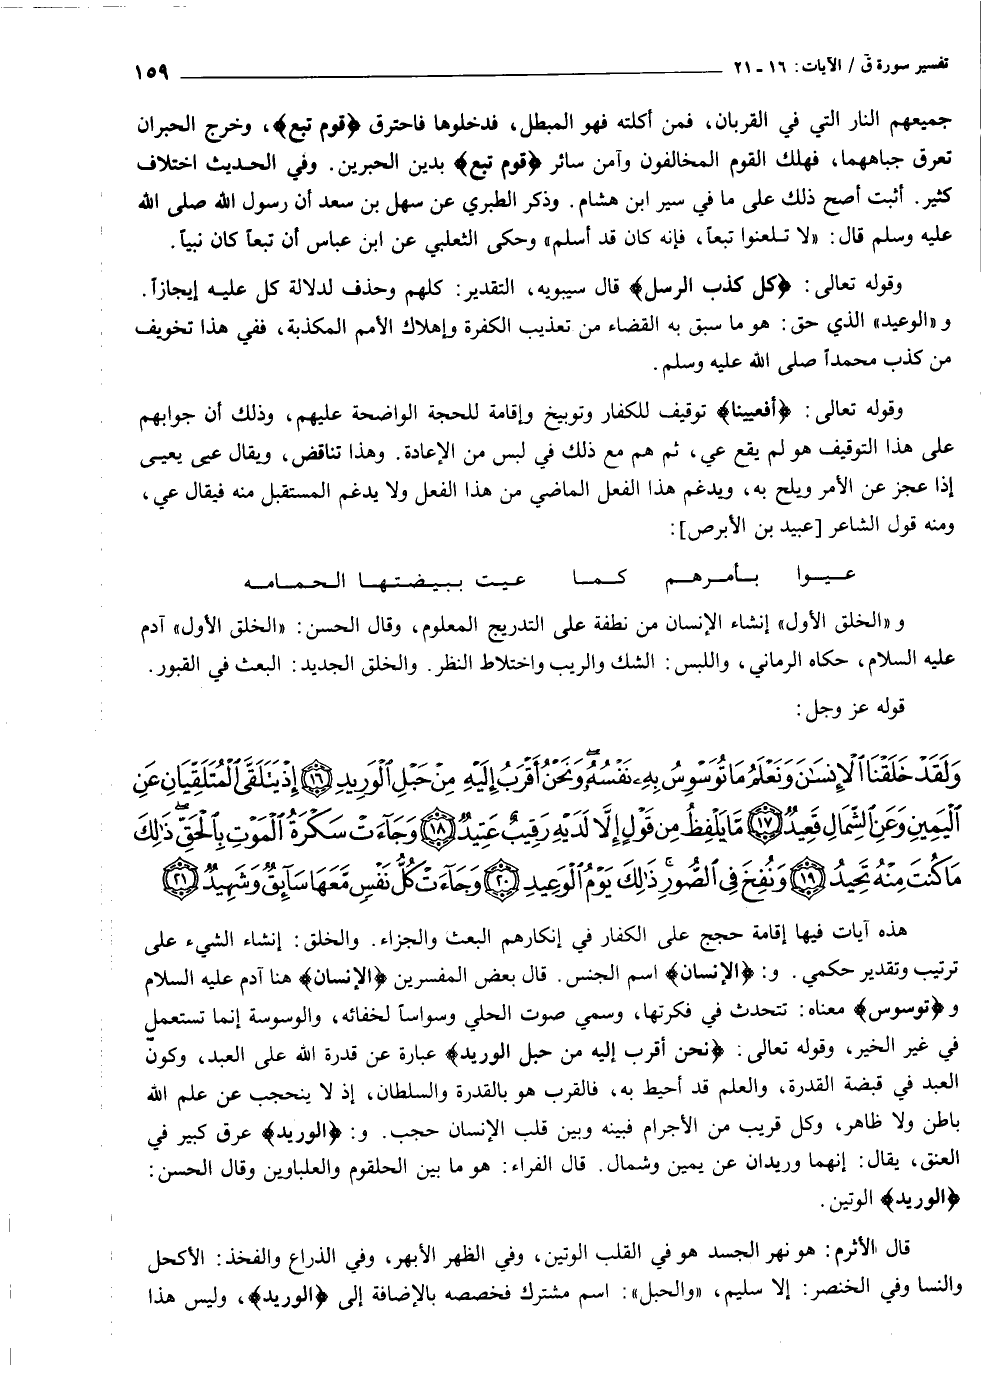 تفسير سورة قٓ / الآيات: ١٦ - ٢١ ١٥٩
جميعهم النار التي في القربان، فمن أكلته فهو المبطل، فدخلوها فاحترق ﴿قوم تبع﴾، وخرج الحبران
تعرق جباههما، فهلك القوم المخالفون وآمن سائر ﴿قوم تبع﴾ بدين الحبرين. وفي الحديث اختلاف
كثير. أثبت أصح ذلك على ما في سير ابن هشام. وذكر الطبري عن سهل بن سعد أن رسول الله صلى الله
عليه وسلم قال: «لا تلعنوا تبعاً، فإنه كان قد أسلم» وحكى الثعلبي عن ابن عباس أن تبعاً كان نبياً.
وقوله تعالى: ﴿كل كذب الرسل﴾ قال سيبويه، التقدير: كلهم وحذف لدلالة كل عليه إيجازاً.
و«الوعيد» الذي حق: هو ما سبق به القضاء من تعذيب الكفرة وإهلاك الأمم المكذبة، ففي هذا تخويف
من كذب محمداً صلى الله عليه وسلم.
وقوله تعالى: ﴿أفعيينا﴾ توقيف للكفار وتوبيخ وإقامة للحجة الواضحة عليهم، وذلك أن جوابهم
على هذا التوقيف هو لم يقع عي، ثم هم مع ذلك في لبس من الإعادة. وهذا تناقض، ويقال عيى يعيى
إذا عجز عن الأمر ويلح به، ويدغم هذا الفعل الماضي من هذا الفعل ولا يدغم المستقبل منه فيقال عي،
ومنه قول الشاعر [عبيد بن الأبرص]:
عيوا بأمرهم كما عيت ببيضتها الحمامه
و«الخلق الأول» إنشاء الإنسان من نطفة على التدريج المعلوم، وقال الحسن: «الخلق الأول» آدم
عليه السلام، حكاه الرماني، واللبس: الشك والريب واختلاط النظر. والخلق الجديد: البعث في القبور.
قوله عز وجل:
وَلَقَدْ خَلَقْنَا ٱلْإِنسَٰنَ وَنَعْلَمُ مَا تُوَسْوِسُ بِهِۦ نَفْسُهُۥۖ وَنَحْنُ أَقْرَبُ إِلَيْهِ مِنْ حَبْلِ ٱلْوَرِيدِ ﴿١٦﴾ إِذْ يَتَلَقَّى ٱلْمُتَلَقِّيَانِ عَنِ
ٱلْيَمِينِ وَعَنِ ٱلشِّمَالِ قَعِيدٌ ﴿١٧﴾ مَّا يَلْفِظُ مِن قَوْلٍ إِلَّا لَدَيْهِ رَقِيبٌ عَتِيدٌ ﴿١٨﴾ وَجَآءَتْ سَكْرَةُ ٱلْمَوْتِ بِٱلْحَقِّۖ ذَٰلِكَ
مَا كُنتَ مِنْهُ تَحِيدُ ﴿١٩﴾ وَنُفِخَ فِى ٱلصُّورِۚ ذَٰلِكَ يَوْمُ ٱلْوَعِيدِ ﴿٢٠﴾ وَجَآءَتْ كُلُّ نَفْسٍ مَّعَهَا سَآئِقٌ وَشَهِيدٌ ﴿٢١﴾
هذه آيات فيها إقامة حجج على الكفار في إنكارهم البعث والجزاء. والخلق: إنشاء الشيء على
ترتيب وتقدير حكمي. و: ﴿الإنسان﴾ اسم الجنس. قال بعض المفسرين ﴿الإنسان﴾ هنا آدم عليه السلام
و﴿توسوس﴾ معناه: تتحدث في فكرتها، وسمي صوت الحلي وسواساً لخفائه، والوسوسة إنما تستعمل
في غير الخير، وقوله تعالى: ﴿نحن أقرب إليه من حبل الوريد﴾ عبارة عن قدرة الله على العبد، وكون
العبد في قبضة القدرة، والعلم قد أحيط به، فالقرب هو بالقدرة والسلطان، إذ لا ينحجب عن علم الله
باطن ولا ظاهر، وكل قريب من الأجرام فبينه وبين قلب الإنسان حجب. و: ﴿الوريد﴾ عرق كبير في
العنق، يقال: إنهما وريدان عن يمين وشمال. قال الفراء: هو ما بين الحلقوم والعلباوين وقال الحسن:
﴿الوريد﴾ الوتين.
قال الأثرم: هو نهر الجسد هو في القلب الوتين، وفي الظهر الأبهر، وفي الذراع والفخذ: الأكحل
والنسا وفي الخنصر: إلا سليم، «والحبل»: اسم مشترك فخصصه بالإضافة إلى ﴿الوريد﴾، وليس هذا